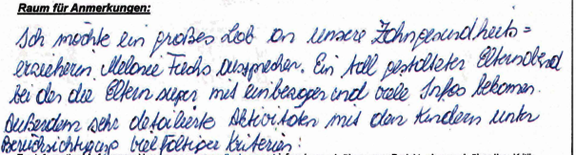 Raum für Anmerkungen:
Ich möchte ein großes Lob an unsere Zahngesundheits=
erzieherin Melanie Fuchs aussprechen. Ein toll gestalteter Elternabend
bei der die Eltern super mit einbezogen und viele Infos bekamen.
Außerdem sehr detailierte Aktivitäten mit den Kindern unter
Berücksichtigung vielfältiger Kriterien!